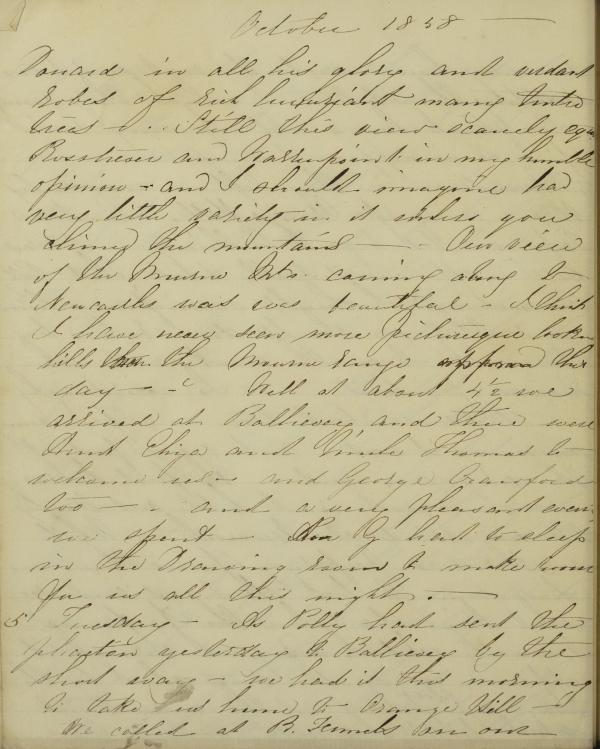 October 1858 —
Donard in all his glory and verdant
robes of rich luxuriant many tinted
trees — . . Still this view scarcely equ
Rosstrevor and Warrenpoint in my humble
opinion - and I should imagine had
very little variety in it unless you
climed the mountains — . Our view
of the Mourne Mts. coming along to
Newcastle was was beautiful - I think
I have never seen more picturesque lookin
hills than the Mourne range the
day — Well at about 4½ we
arrived at Ballievey and there were
Aunt Eliza and Uncle Thomas to
welcome us - and George Crawford
too — . and a very pleasant even
we spent — G had to sleep
in the Drawing room to make room
for us all this night . —
5 Tuesday — As Polly had sent the
phaeton yesterday to Ballievey by the
short way - we had it this morning
to take us home to Orange Hill —
We called at B. Fennels on our